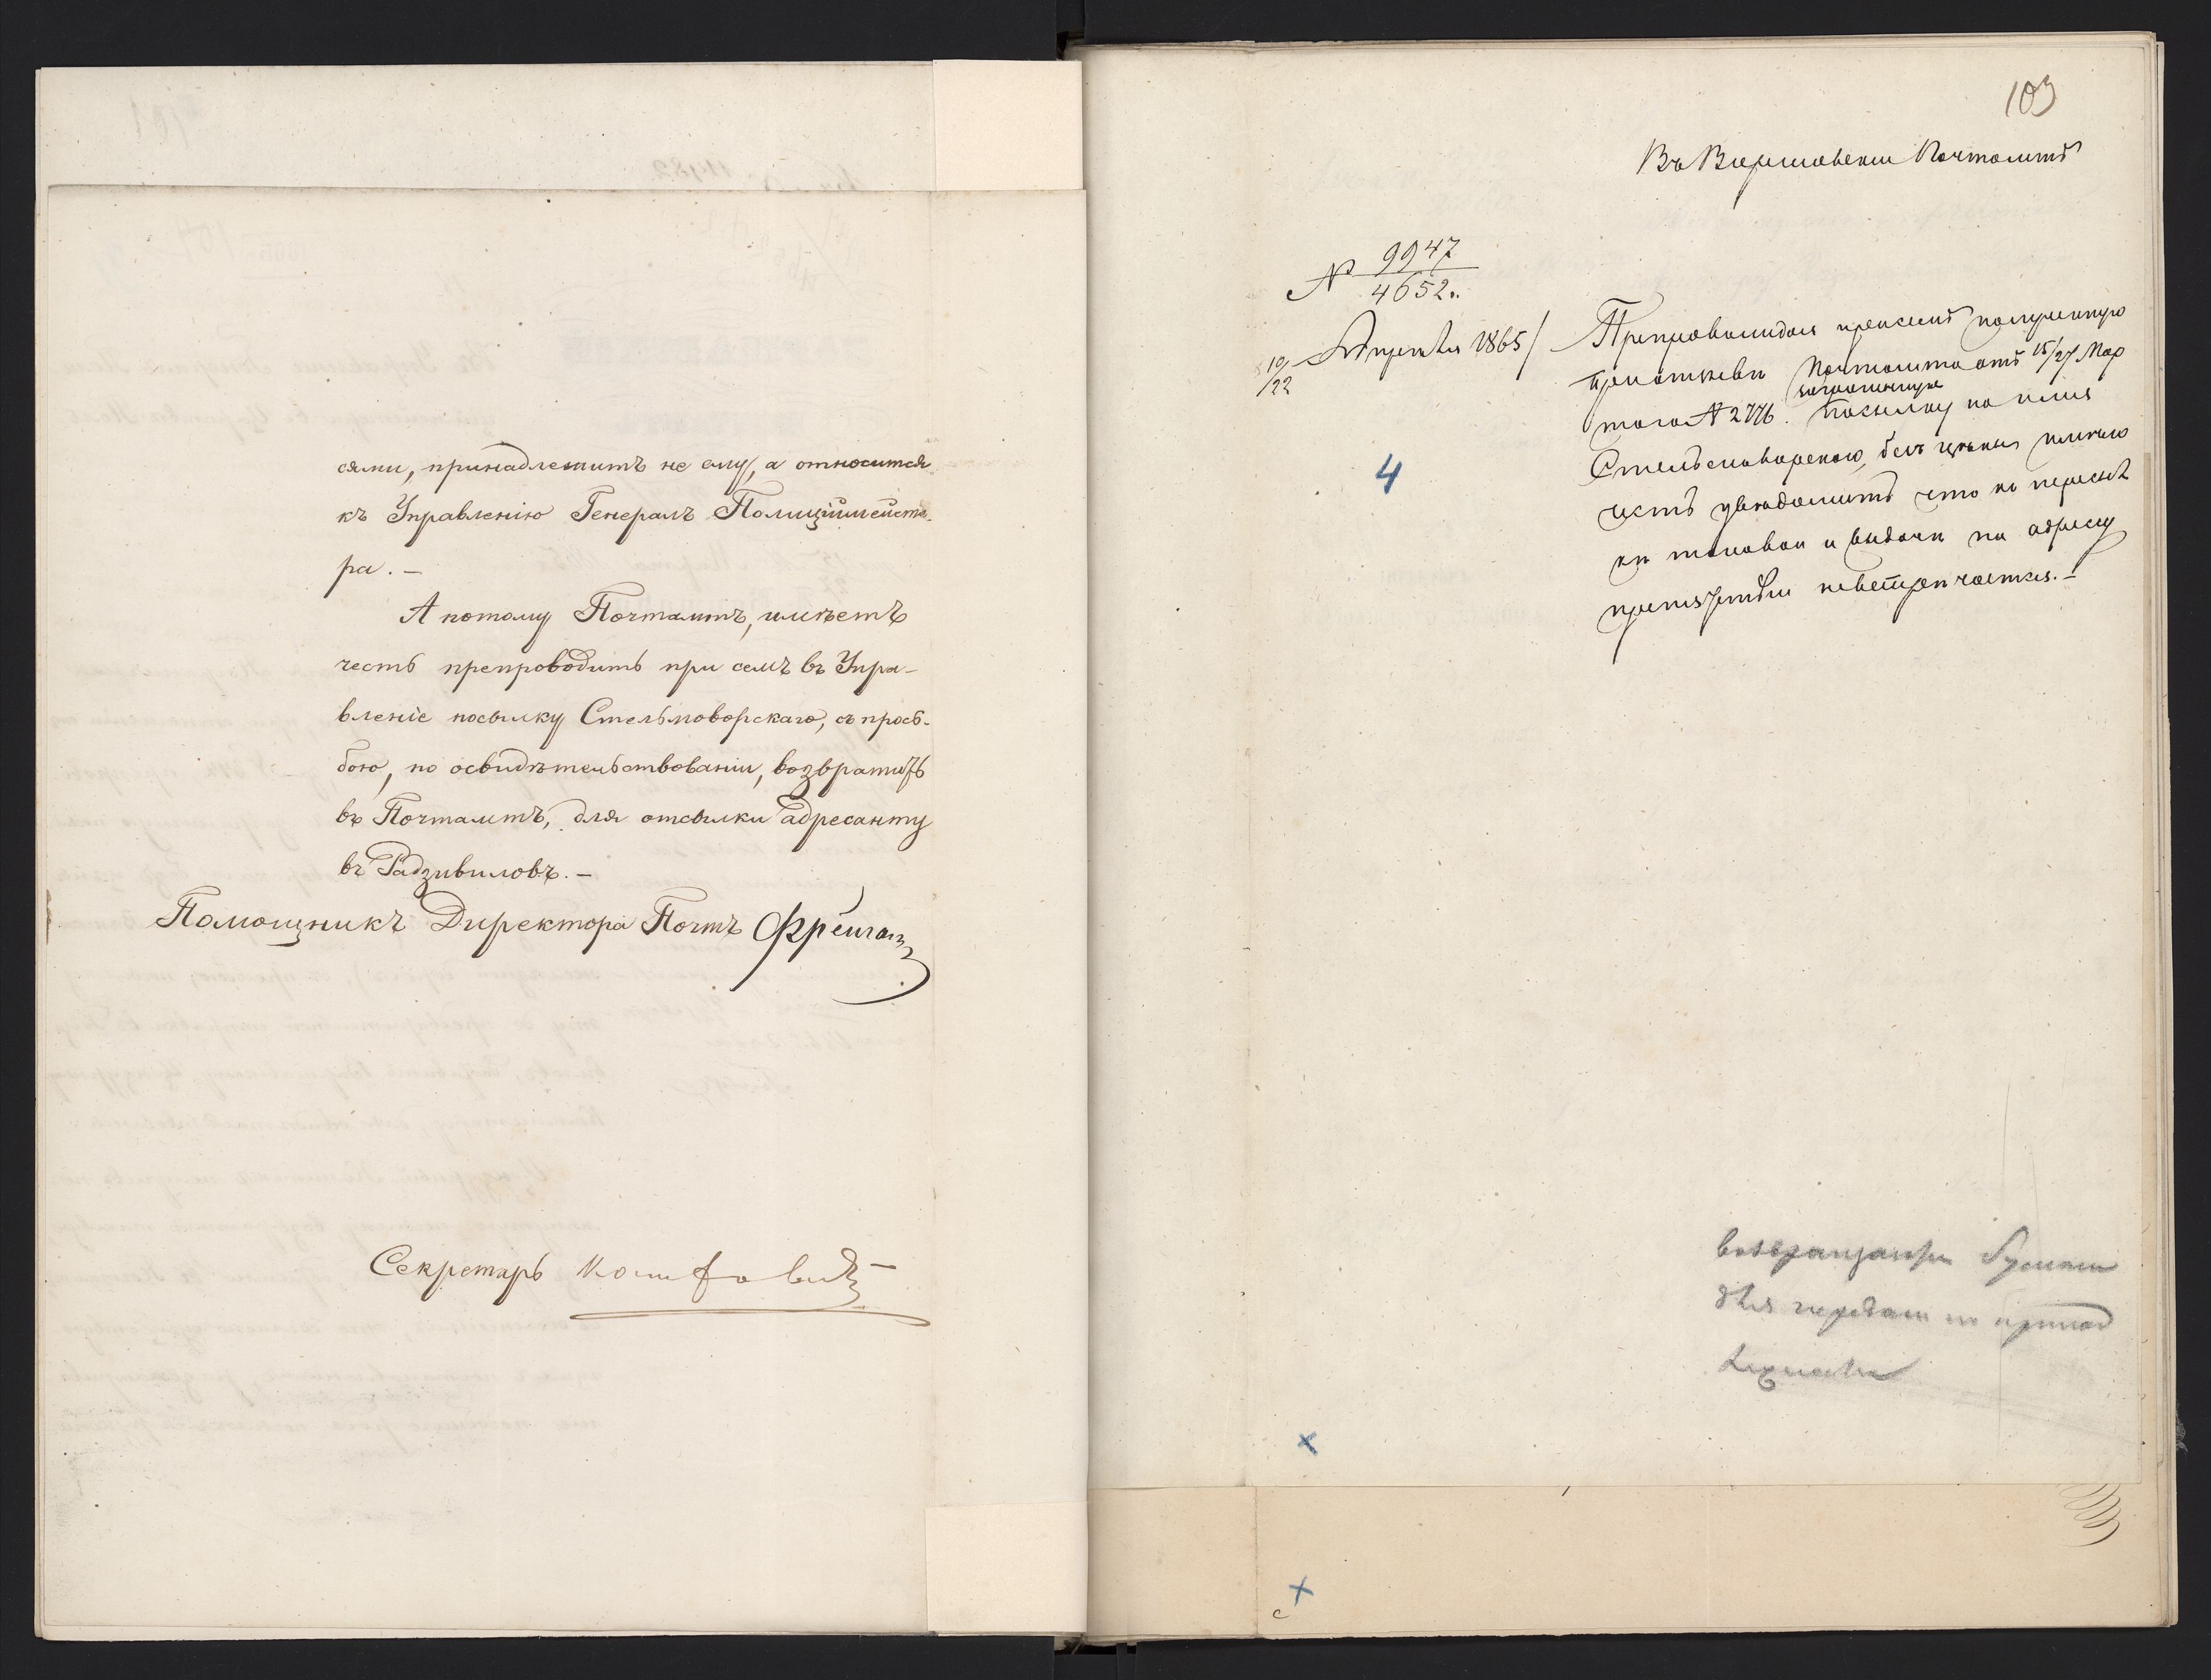 сями, принадлежитъ не ему, а относится
къ Управленію Генералъ Полиціймейсте-
ра. —
А потому Почтамтъ, имѣетъ
честь препроводить при семъ въ Упра-
вленіе посылку Стельмоворскаго, съ прось-
бою, по освидѣтельствованіи, возвратить
въ Почтамтъ, для отсылки адресанту
въ Радзивиловъ. —
Помощникъ Директора Почтъ
Секретарь
103
Въ Варшавскій Почтамтъ
№ 9947
4652.
10/22 Апрѣля 1865
4
Препровождая при семъ полученную
при отзывѣ Почтамта отъ 15/27 Мар
та № 2776. посылку на имя
честь увѣдомить что къ пересыл
кѣ таковой и выдачи по адресу
препятствій не встрѣчается. —
для передачи по принад